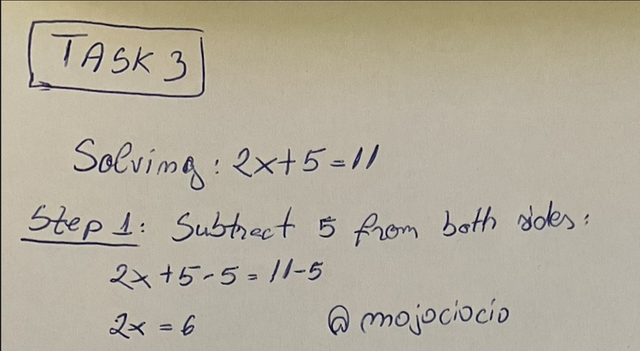 TASK 3
Solving: 2x+5=11
Step 1: Subtract 5 from both sides:
2x+5-5=11-5
2x=6
@mojociocio